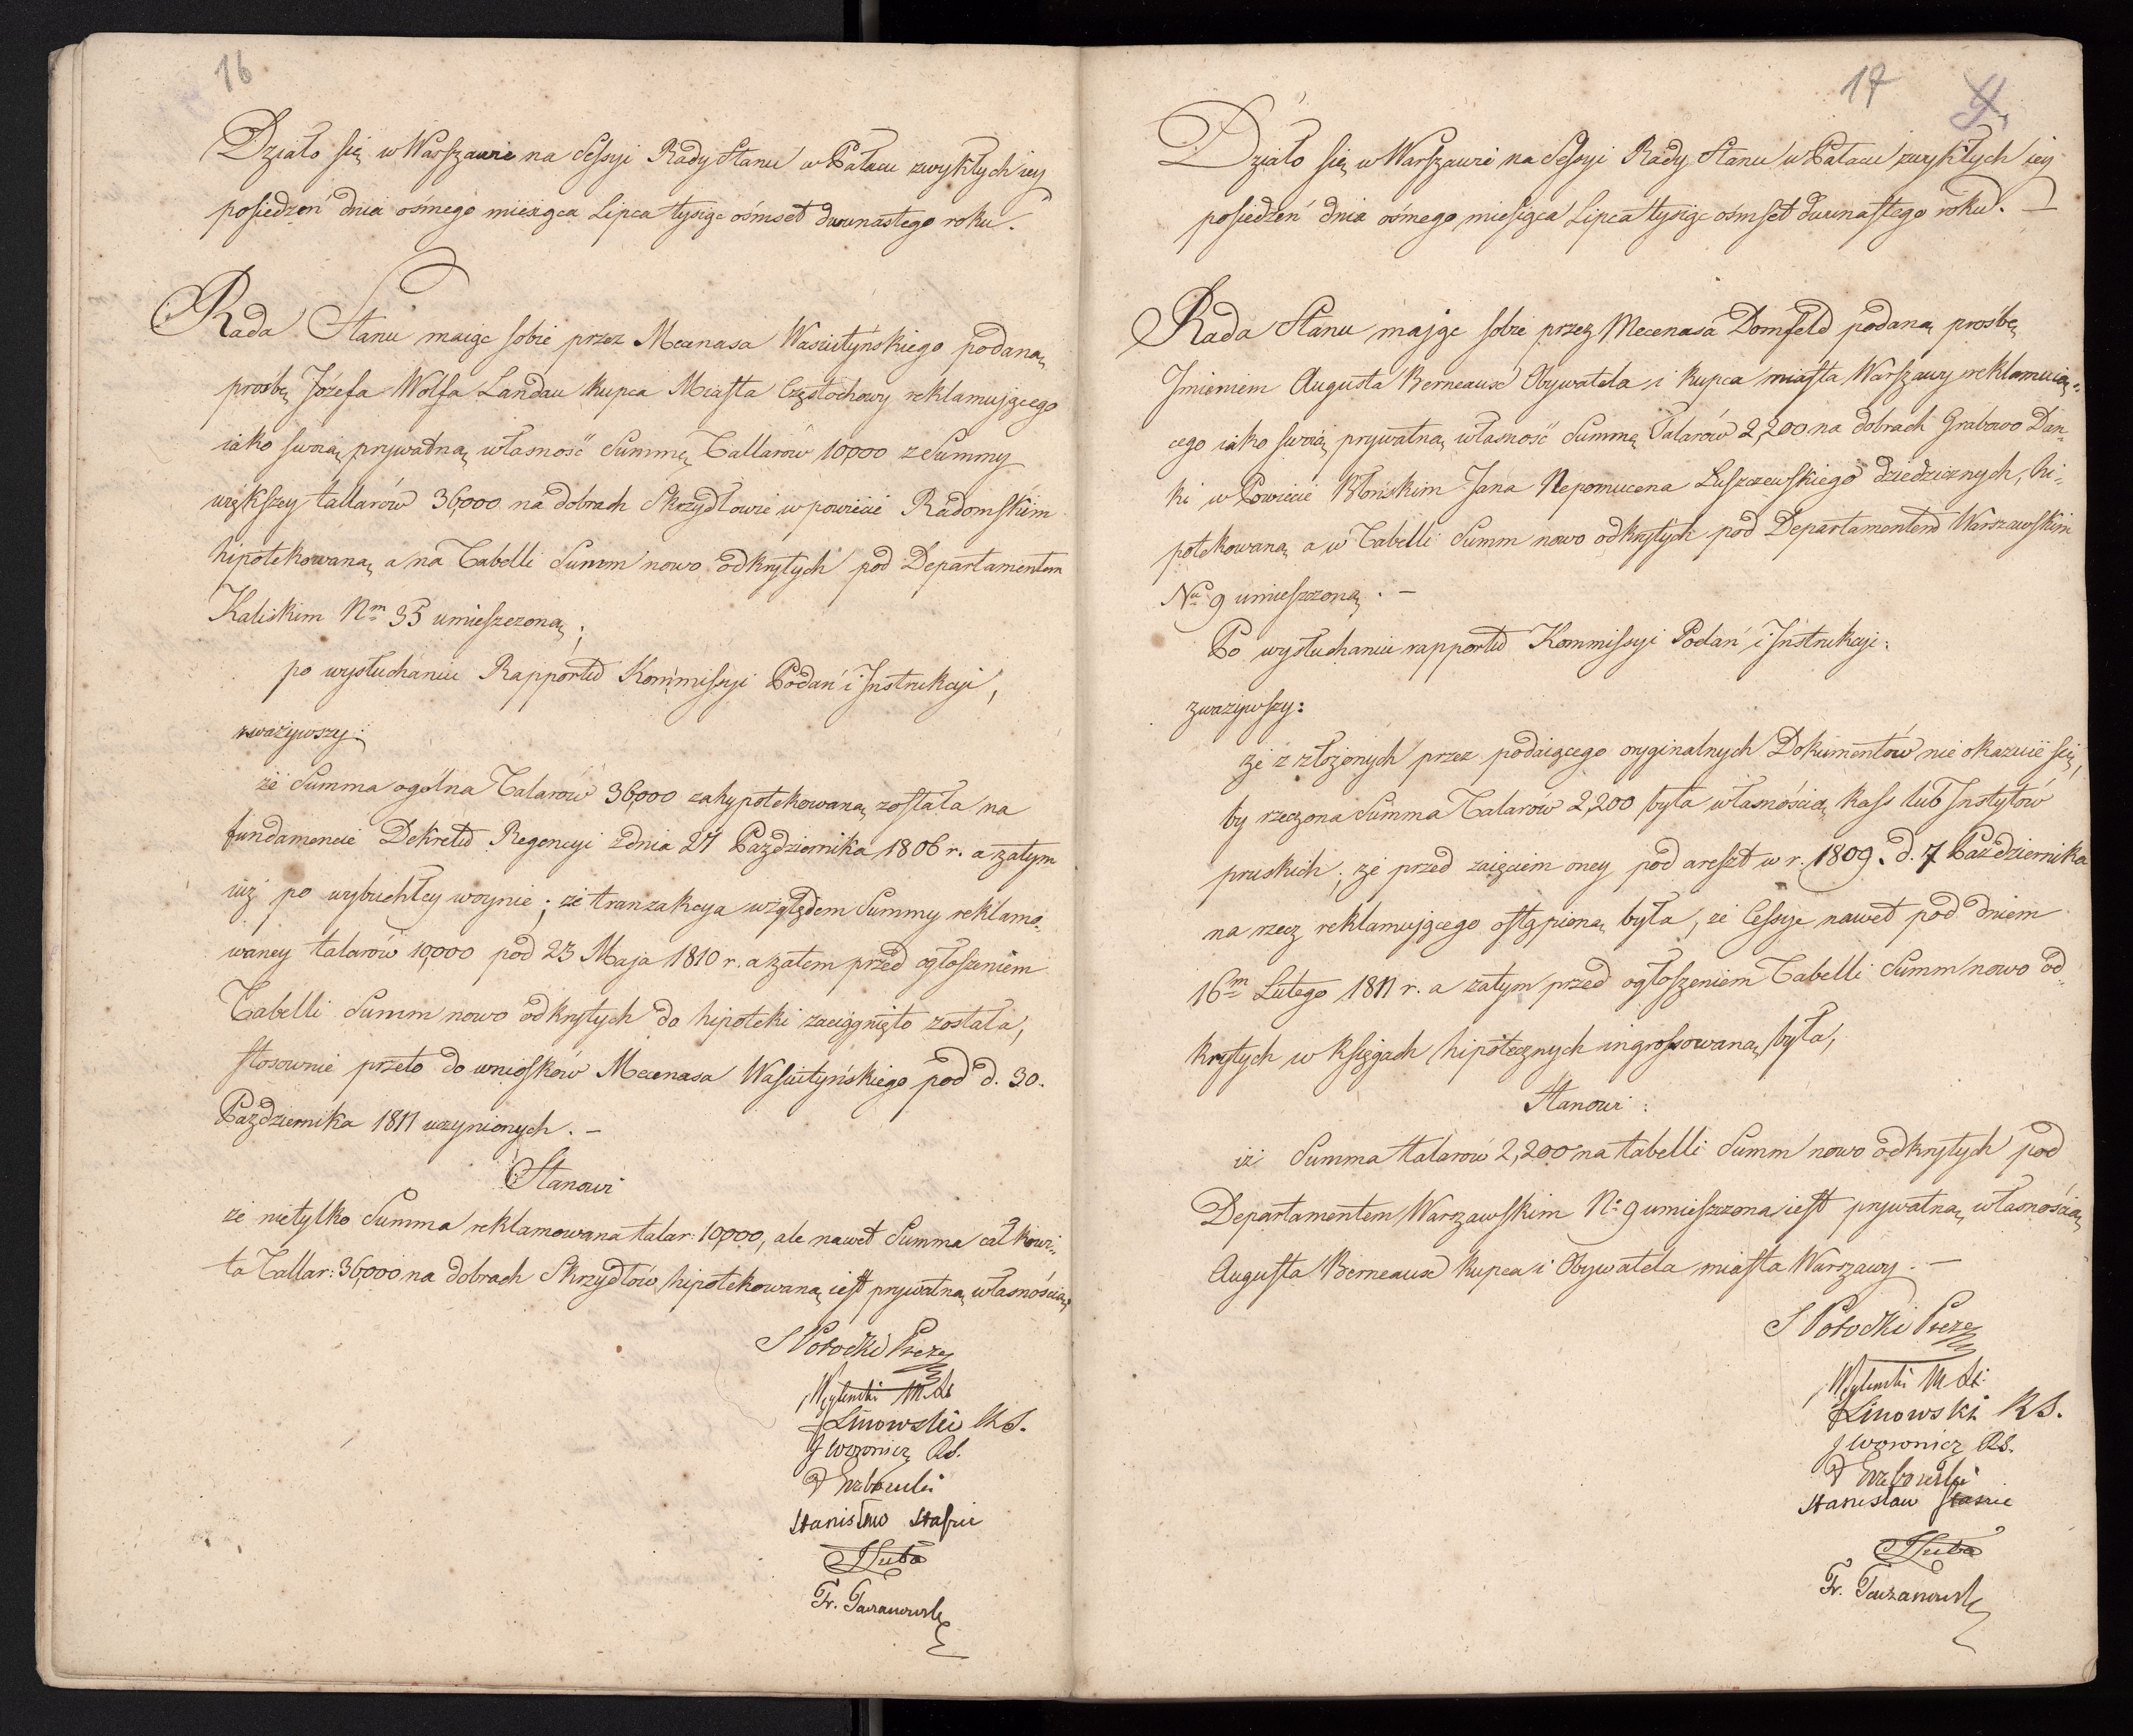 16
Działo się w Warszawie na Sessyi Rady Stanu w Pałacu zwykłych iey
posiedzeń dnia ośmego miesiąca Lipca tysiąc ośmset dwunastego roku.
Rada Stanu maiąc sobie przez Mecenasa Wasiutyńskiego podaną
prośbę Józefa Wolfa Landau kupca Miasta Częstochowy reklamującego
iako swoią prywatną własność Summę Tallarów 10,000 z Summy
większey tallarów 36,000 na dobrach Skrzydłowie w powiecie Radomskim
hipotekowaną, a na Tabelli Summ nowo odkrytych pod Departamentem
Kaliskim Nm 35 umieszczoną;
po wysłuchaniu Rapportu Kommissyi Podań i Instrukcyi,
zważywszy:
że Summa ogólna Talarów 36,000 zahypotekowaną została na
fundamencie Dekretu Regencyi z dnia 27 Października 1806 r. a zatym
iuż po wybuchłey woynie; że tranzakcya względem Summy reklamo-
waney talarów 10,000 pod 23 Maja 1810 r. a zatem przed ogłoszeniem
Tabelli Summ nowo odkrytych do hipoteki zaciągnięto została,
stosownie przeto do wniosków Mecenasa Wasiutyńskiego pod d. 30.
Października 1811 uczynionych. –
Stanowi
że nietylko Summa reklamowana talar: 10,000, ale nawet Summa całkowi-
ta Tallar: 36,000 na dobrach Skrzydłów hipotekowaną iest prywatną własnością,
S Potocki Prezes
Węgleński M.
Linowski RS.
J Woronicz RS.
Stanisław Staszic
F. Łuba
Fr. Tarzanowski
17
Działo się w Warszawie na Sessyi Rady Stanu w Pałacu zwykłych iey
posiedzeń dnia ośmego miesiąca Lipca tysiąc ośmset dwunastego roku. –
Rada Stanu mając sobie przez Mecenasa Domfeld podaną prośbę
Imieniem Augusta Berneaux Obywatela i kupca miasta Warszawy reklamuią-
cego iako swoią prywatną własność Summę Talarów 2,200 na dobrach Grabowo Dan-
ki w Powiecie Błońskim Jana Nepomucena Łuszczewskiego dziedzicznych, hi-
potekowaną a w Tabelli Summ nowo odkrytych pod Departamentem Warszawskim
No 9 umieszczoną. –
Po wysłuchaniu rapportu Kommissyi Podań i Instrukcyi:
zważywszy:
że z złożonych przez podaiącego oryginalnych Dokumentów nie okazuie się,
by rzeczona Summa Talarów 2,200 była własnością Kass lub Instytów
pruskich; że przed zaięciem oney pod areszt w r. 1809. d. 7 Października
na rzecz reklamującego ostąpioną była, że Cessye nawet pod dniem
16m Lutego 1811 r. a zatym przed ogłoszeniem Tabelli Summ nowo od-
krytych w księgach hipotecznych ingrossowaną była,
Stanowi:
iż Summa talarów 2,200 na tabelli Summ nowo odkrytych pod
Departamentem Warszawskim No 9 umieszczona iest prywatną własnością
Augusta Berneaux kupca i Obywatela miasta Warszawy. –
S Potocki Prezes
Węgleński M.
Linowski RS.
J Woronicz RS.
Stanisław Staszic
F. Łuba
Fr. Tarzanowski